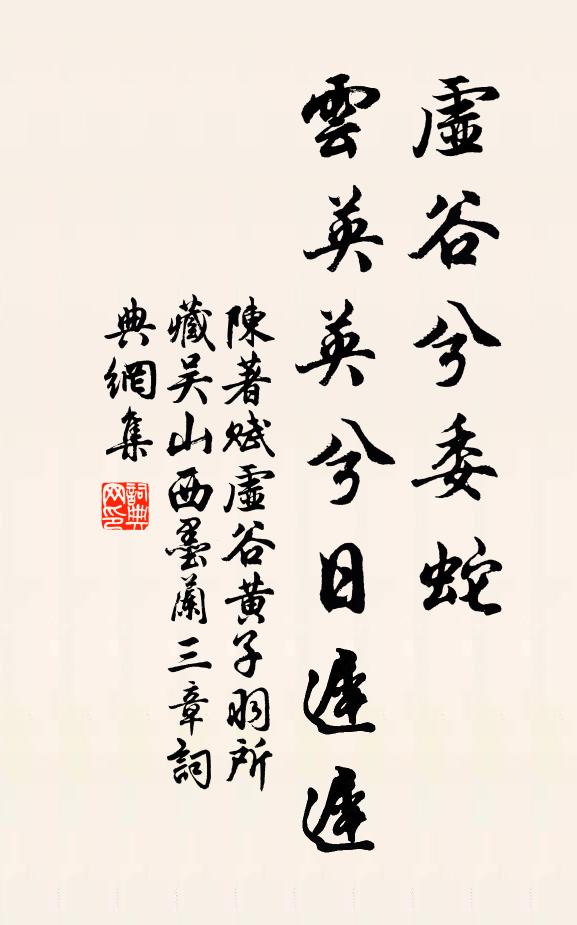 虛谷兮委蛇
雲英英兮日遲遲
陳著賦虛谷黃子羽所
藏吴山西墨蘭三章詞
典網集
詞典
网印